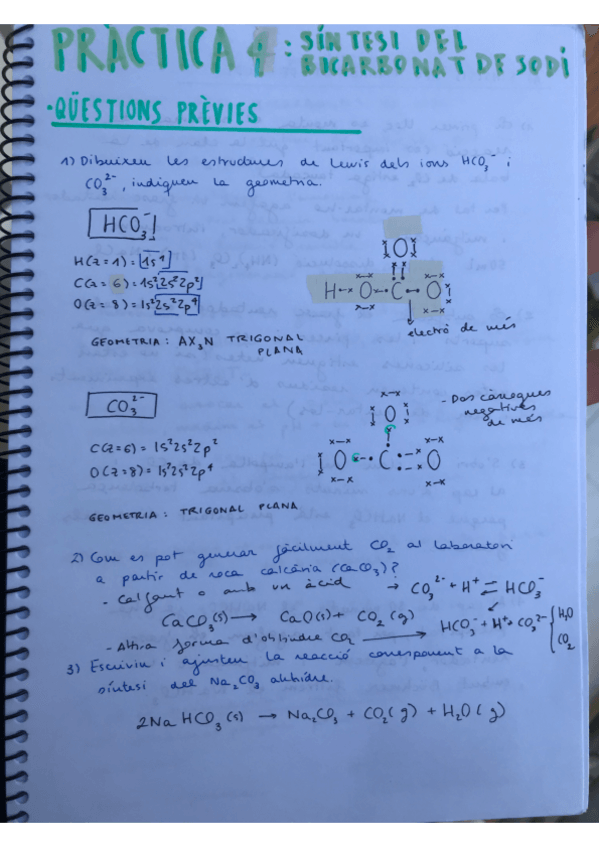 PRÀCTICA 4: SÍNTESI DEL
BICARBONAT DE SODI
·QÜESTIONS PRÈVIES
1) Dibuixeu les estructures de Lewis dels ions HCO₃⁻ i
CO₃²⁻, indiqueu la geometria.
HCO₃⁻
H(z=1) = 1s¹
C(z=6) = 1s²2s²2p²
O(z=8) = 1s²2s²2p⁴
H O C O
O
electró de més
GEOMETRIA: AX₃N TRIGONAL
PLANA
CO₃²⁻
- Dos càrregues
negatives
de més
C(z=6) = 1s²2s²2p²
O(z=8) = 1s²2s²2p⁴
O
O C O
GEOMETRIA: TRIGONAL PLANA
2) Com es pot generar fàcilment CO₂ al laboratori
a partir de roca calcària (CaCO₃)?
- Calfant o amb un àcid → CO₃²⁻ + H⁺ ⇌ HCO₃⁻
CaCO₃(s) → CaO(s) + CO₂(g)
HCO₃⁻ + H⁺ → CO₃²⁻ { H₂O
CO₂
- Altra forma d'obtindre CO₂
3) Escriviu i ajusteu la reacció corresponent a la
síntesi del Na₂CO₃ anhidre.
2NaHCO₃(s) → Na₂CO₃ + CO₂(g) + H₂O(g)